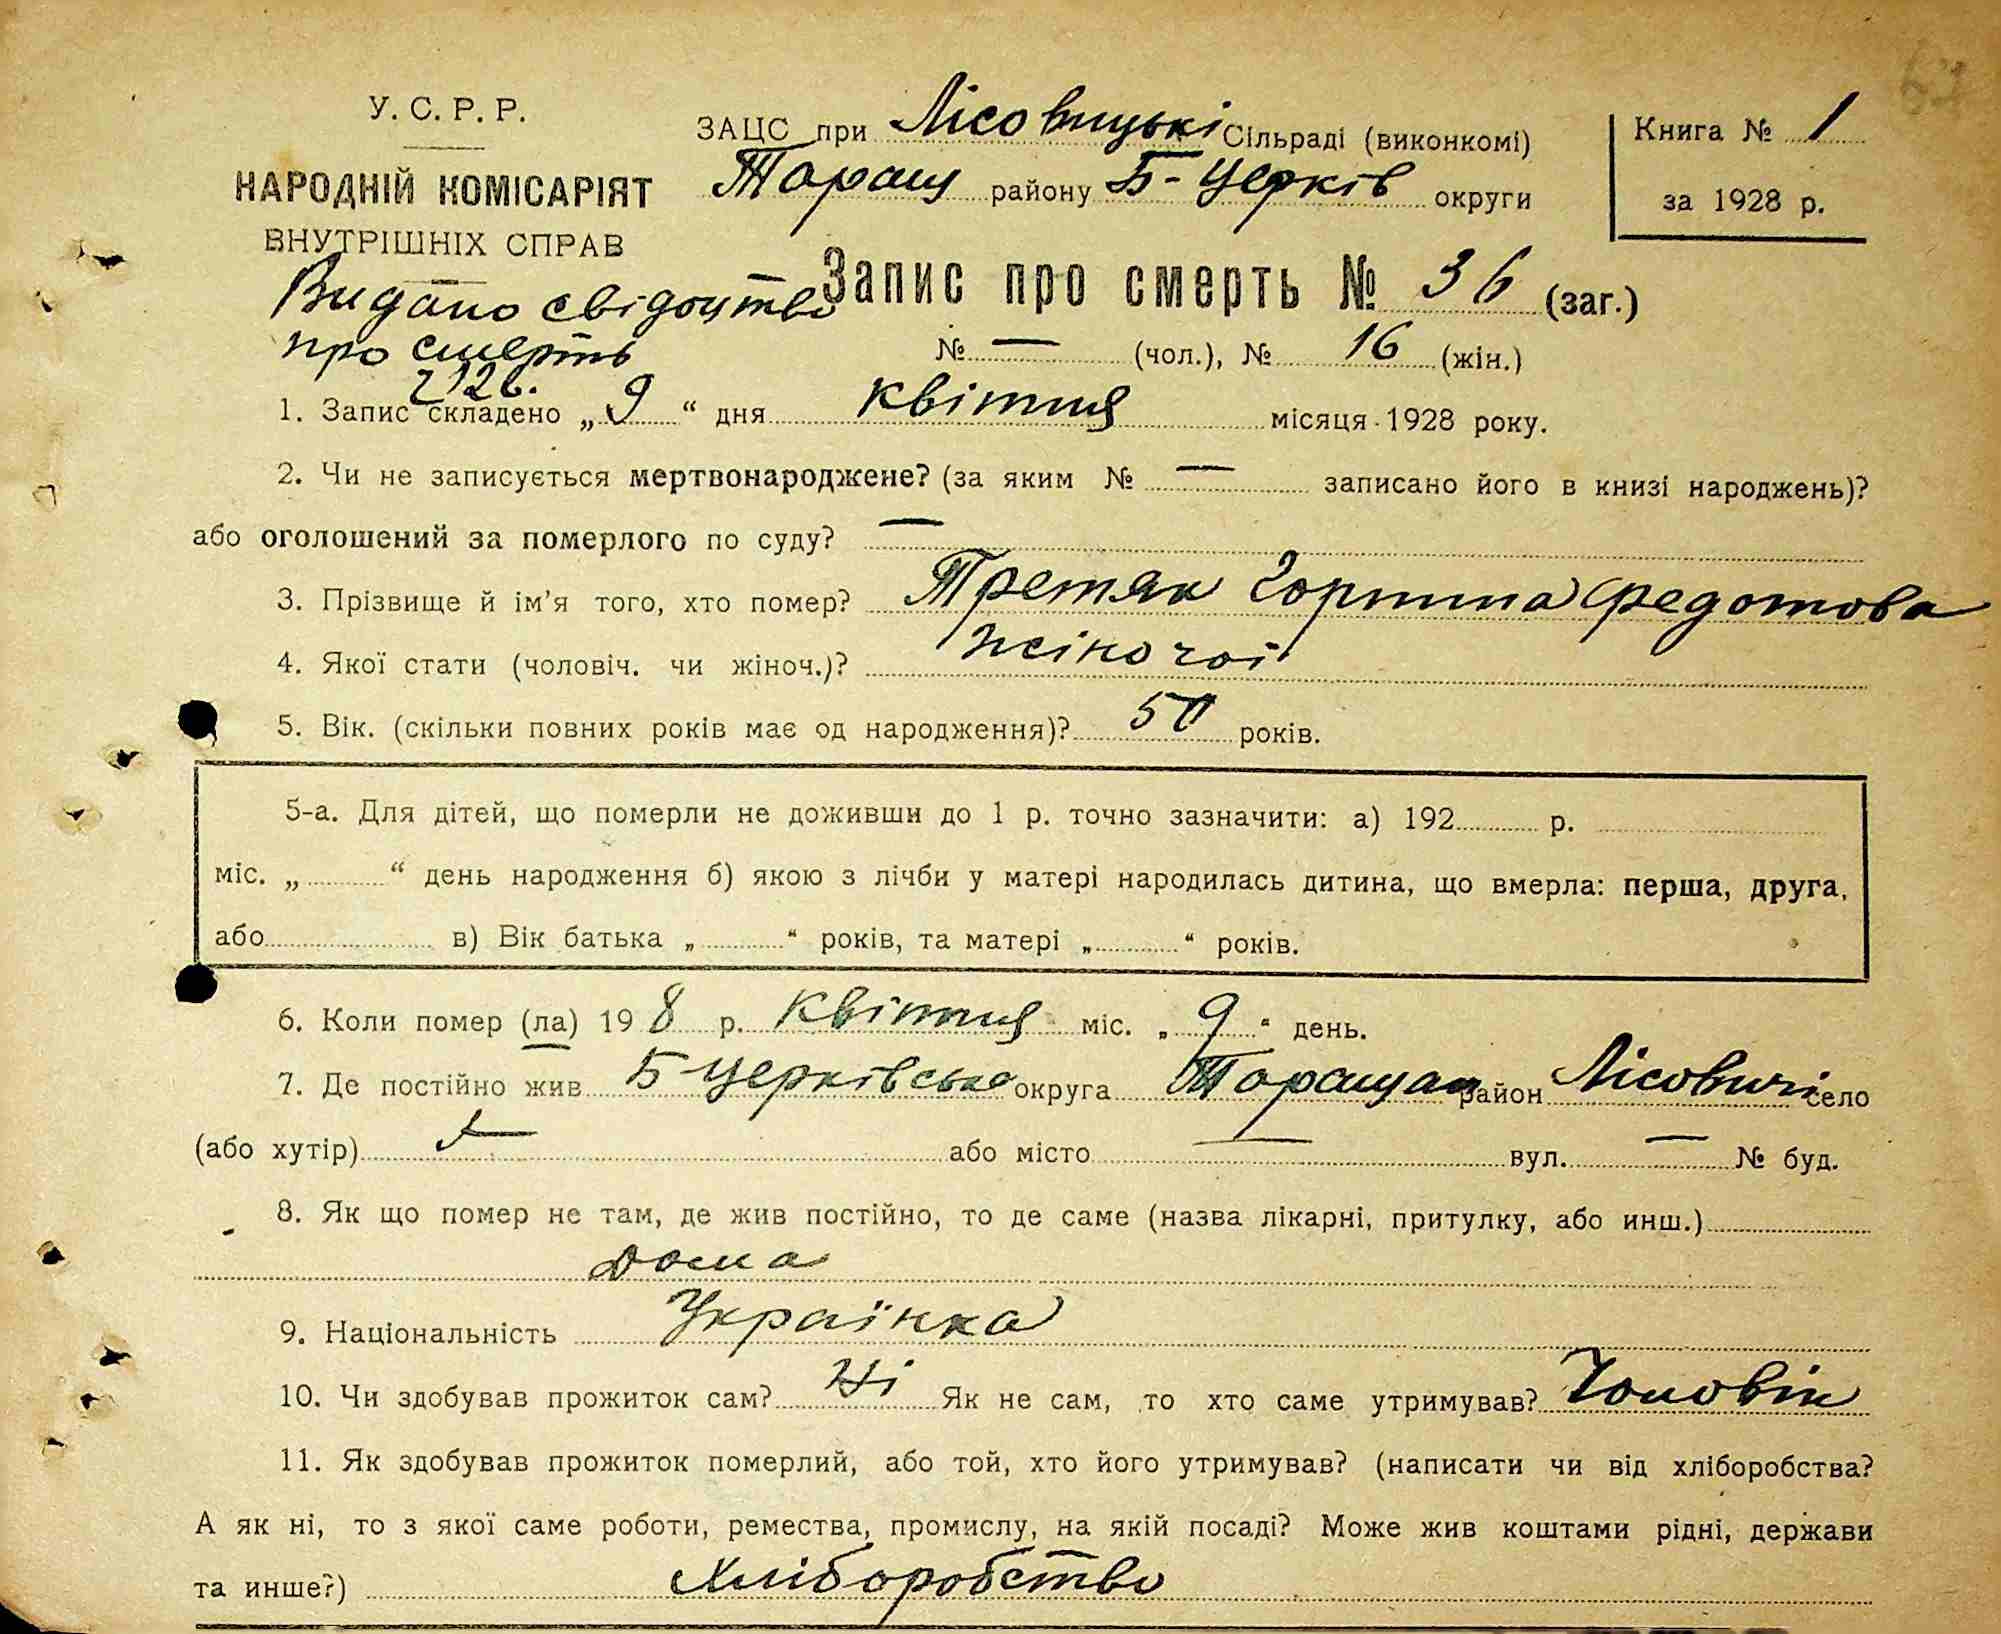 У. С. Р. Р.
НАРОДНІЙ КОМІСАРІЯТ
ВНУТРІШНІХ СПРАВ
ЗАЦС при Лісовицькі Сільраді (виконкомі)
Таращ району Б-Церків округи
Книга № 1
за 1928 р.
Видано свідоцтво
про смерть
Запис про смерть № 36 (заг.)
№ — (чол.), № 16 (жін.)
1. Запис складено „ 9 “ дня квітня місяця 1928 року.
2. Чи не записується мертвонароджене? (за яким № — записано його в книзі народжень)?
або оголошений за померлого по суду? —
3. Прізвище й ім'я того, хто помер? Третяк Горпина Федотова
4. Якої стати (чоловіч. чи жіноч.)? жіночої
5. Вік. (скільки повних років має од народження)? 50 років.
5-а. Для дітей, що померли не доживши до 1 р. точно зазначити: а) 192 р.
міс. „ “ день народження б) якою з лічби у матері народилась дитина, що вмерла: перша, друга,
або в) Вік батька „ “ років, та матері „ “ років.
6. Коли помер (ла) 19 8 р. квітня міс. „ 9 “ день.
7. Де постійно жив Б-Церківська округа Таращан район Лісовичі село
(або хутір) або місто — вул. — № буд.
8. Як що помер не там, де жив постійно, то де саме (назва лікарні, притулку, або инш.)
дома
9. Національність Українка
10. Чи здобував прожиток сам? Ні Як не сам, то хто саме утримував? Чоловік
11. Як здобував прожиток померлий, або той, хто його утримував? (написати чи від хліборобства?
А як ні, то з якої саме роботи, ремества, промислу, на якій посаді? Може жив коштами рідні, держави
та инше?) Хліборобство